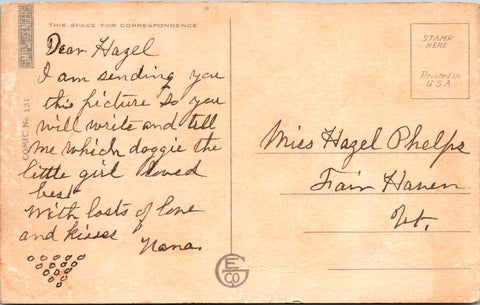 THIS SPACE FOR CORRESPONDENCE
Dear Hazel
I am sending you
this picture so you
will write and tell
me which doggie the
little girl loved
best
With losts of love
and kisses
Nana.
COMIC No. 131
STAMP
HERE
Printed in
U.S.A
Miss Hazel Phelps
Fair Haven
Vt.
E G CO